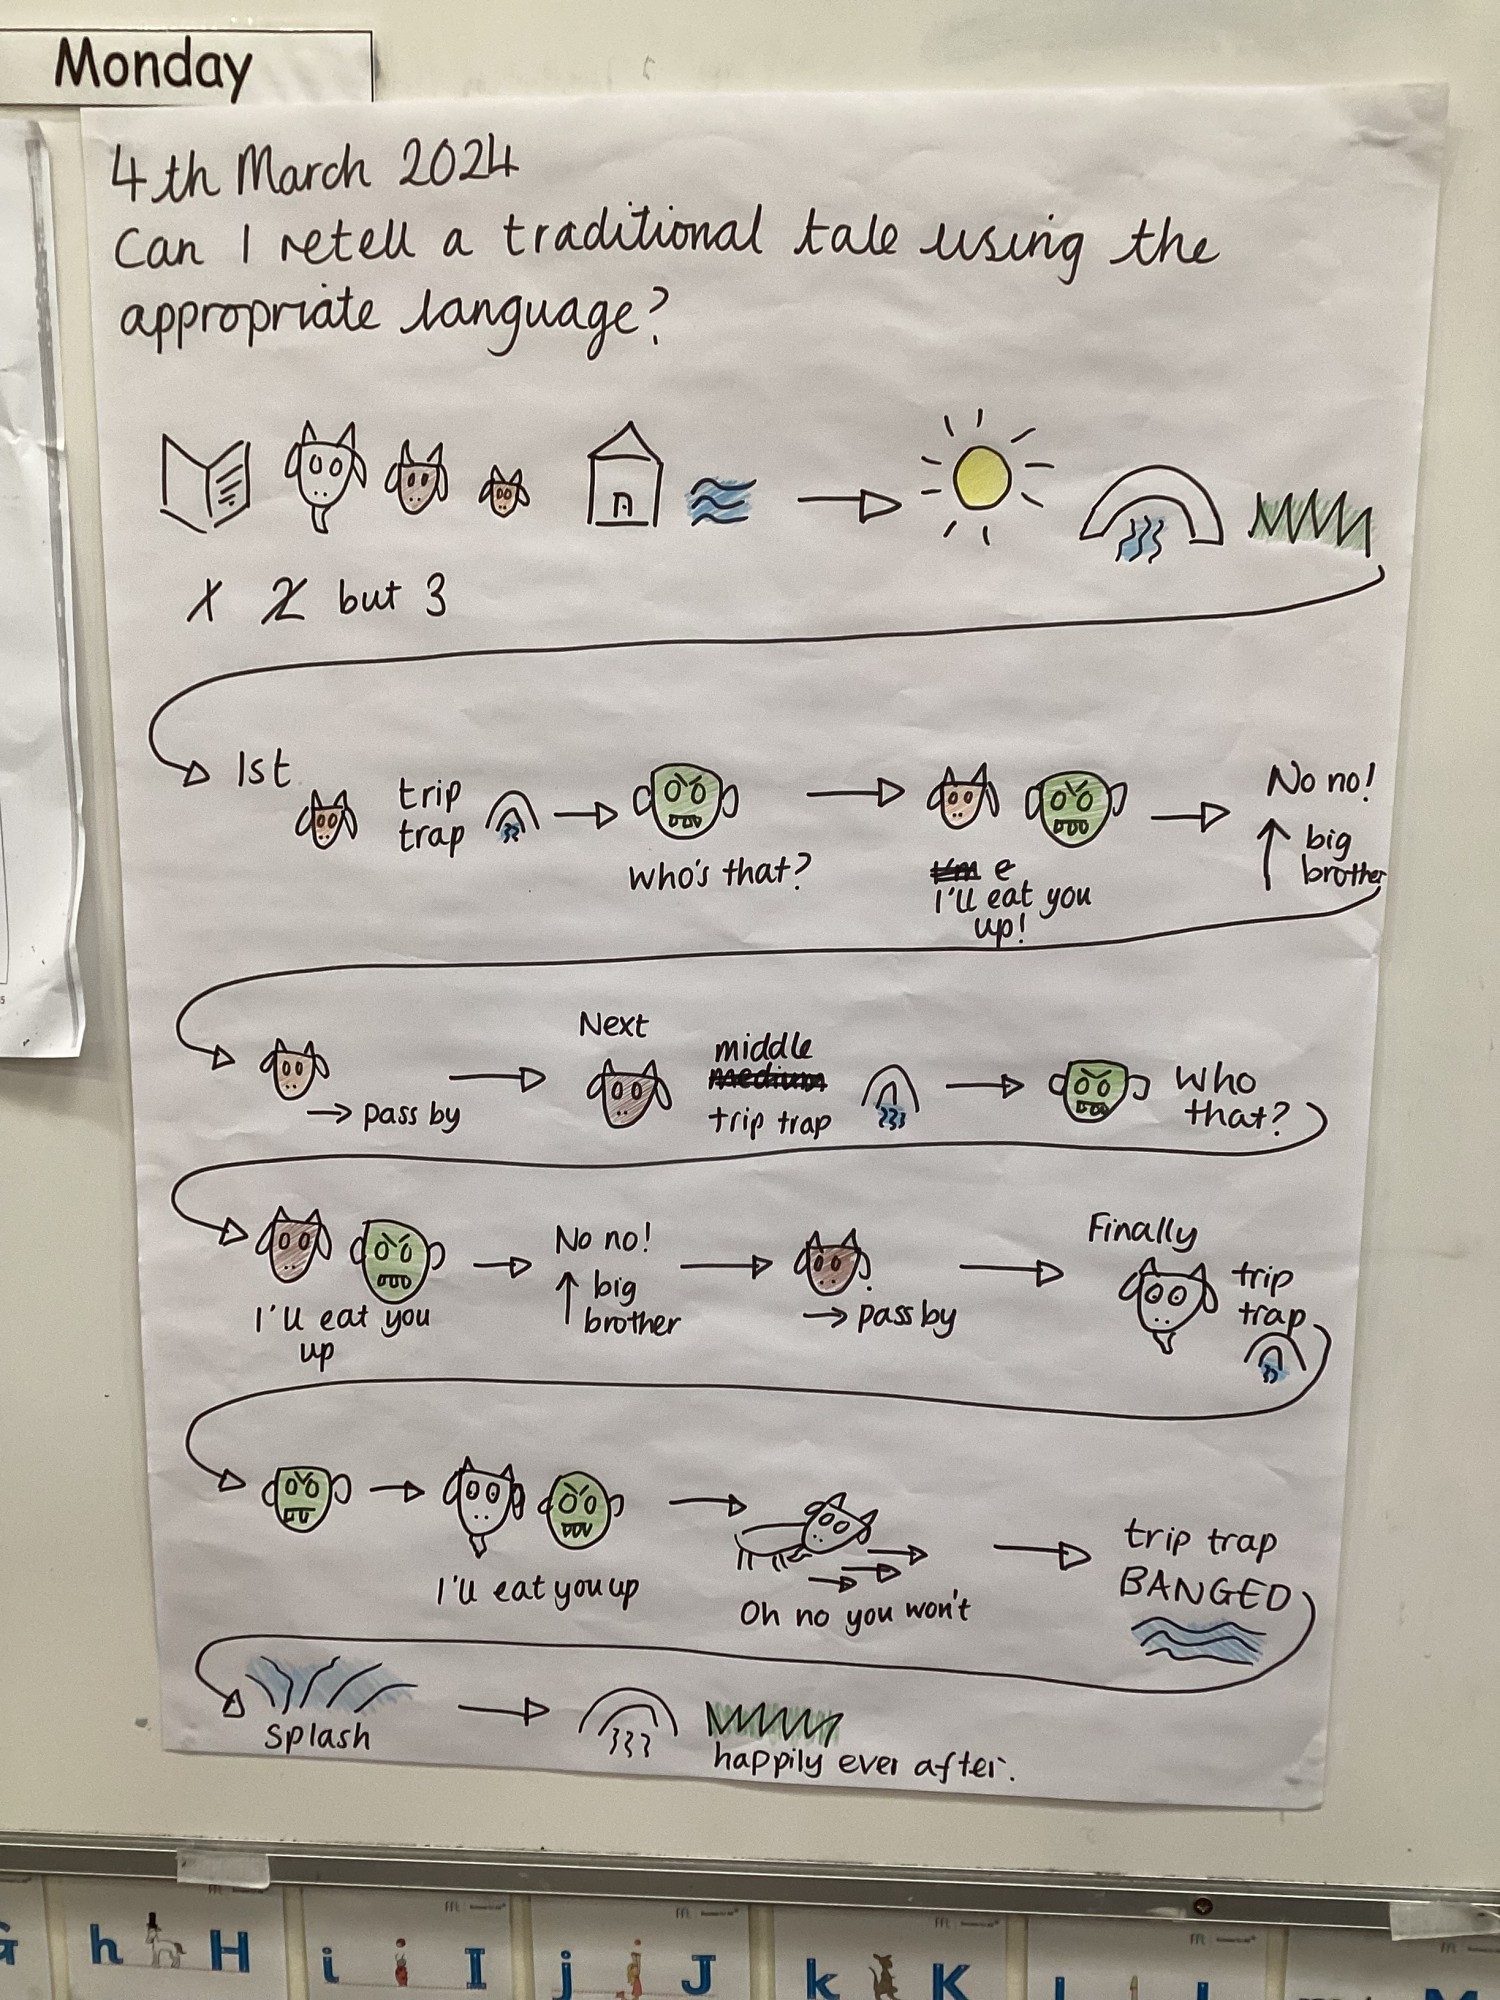 Monday
4th March 2024
Can I retell a traditional tale using the
appropriate language?
1 2 but 3
1st
trip
trap
who's that?
I'll eat you
up!
No no!
big
brother
pass by
Next
middle
medium
trip trap
who
that?
I'll eat you
up
No no!
big
brother
pass by
Finally
trip
trap
I'll eat you up
Oh no you won't
trip trap
BANGED
splash
happily ever after.
h H
i I
j J
k K